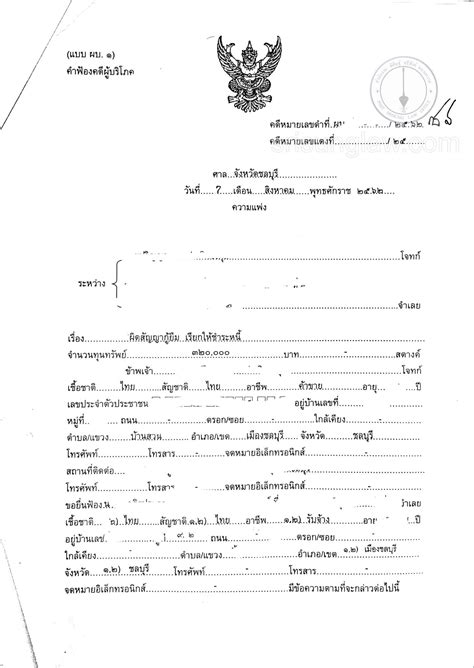 (แบบ ผบ. ๑)
คำฟ้องคดีผู้บริโภค
คดีหมายเลขดำที่ ผบ. / ๒๕๖๒
คดีหมายเลขแดงที่ / ๒๕
ศาล จังหวัดชลบุรี
วันที่ 7 เดือน สิงหาคม พุทธศักราช ๒๕๖๒
ความแพ่ง
โจทก์
ระหว่าง
จำเลย
เรื่อง ผิดสัญญากู้ยืม เรียกให้ชำระหนี้
จำนวนทุนทรัพย์ ๓๒๐,๐๐๐ บาท - สตางค์
ข้าพเจ้า โจทก์
เชื้อชาติ ไทย สัญชาติ ไทย อาชีพ ค้าขาย อายุ ปี
เลขประจำตัวประชาชน อยู่บ้านเลขที่
หมู่ที่ ถนน - ตรอก/ซอย - ใกล้เคียง -
ตำบล/แขวง บ้านสวน อำเภอ/เขต เมืองชลบุรี จังหวัด ชลบุรี
โทรศัพท์ โทรสาร - จดหมายอิเล็กทรอนิกส์ -
สถานที่ติดต่อ
โทรศัพท์ โทรสาร จดหมายอิเล็กทรอนิกส์ -
ขอยื่นฟ้อง จำเลย
เชื้อชาติ ๒) ไทย สัญชาติ ๑,๒) ไทย อาชีพ ๑,๒) รับจ้าง อายุ ปี
อยู่บ้านเลข ถนน - ตรอก/ซอย -
ใกล้เคียง - ตำบล/แขวง อำเภอ/เขต ๑,๒) เมืองชลบุรี
จังหวัด ๑,๒) ชลบุรี โทรศัพท์ - โทรสาร -
จดหมายอิเล็กทรอนิกส์ - มีข้อความตามที่จะกล่าวต่อไปนี้